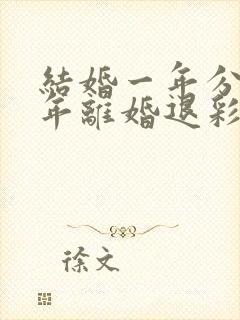 結婚一年分
年離婚退彩
徐文